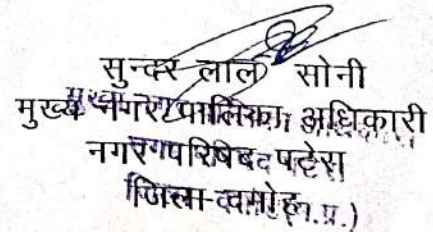 सुन्दर लाल सोनी
मुख्य नगर पालिका अधिकारी
नगर परिषद पटेरा
जिला-दमोह (म.प्र.)